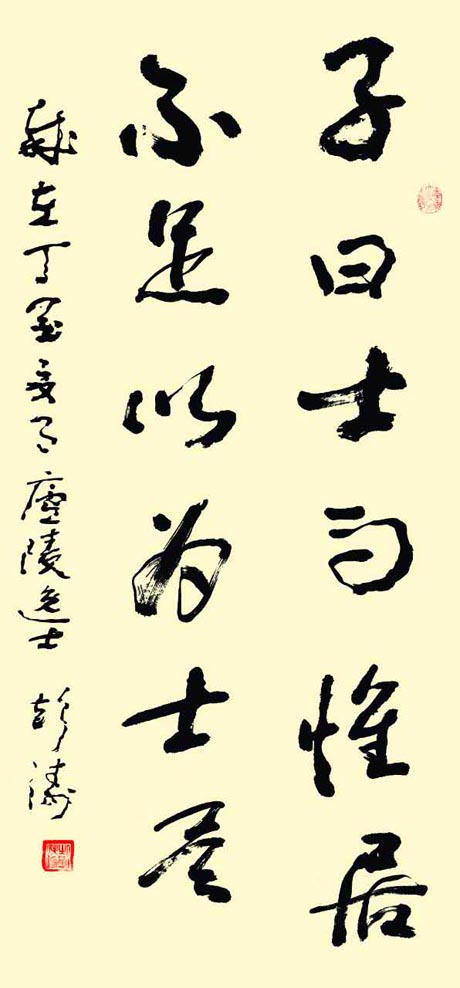 子曰士而惟居
不足以为士矣
歲在丁酉夏月廬陵逸士 彭濤